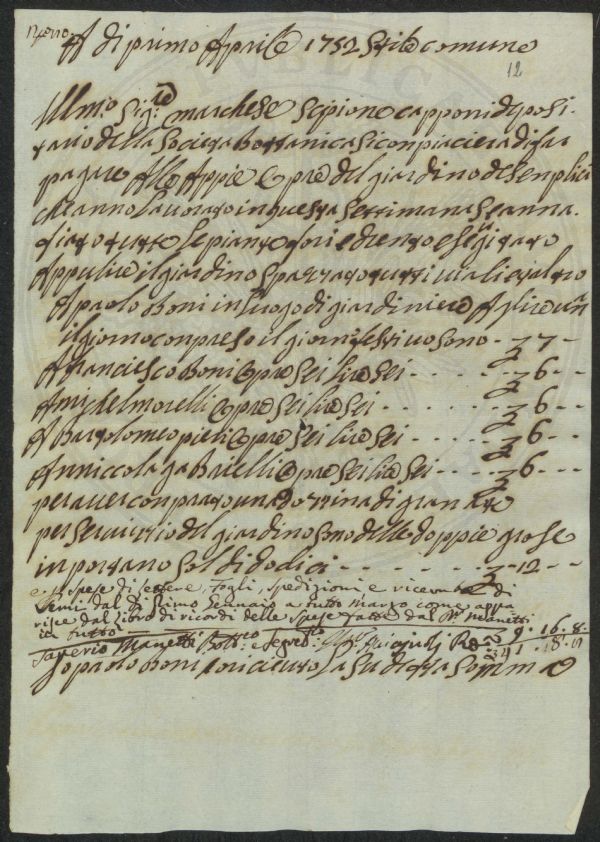 A dì primo Aprile 1752 Stile comune
12
Illmo Sigre marchese Scipione capponi deposi
tario della Società bottanica si conpiacierà di far
pagare Alle Appiè Opre del giardino de Senplici
che anno lavorato in questa settimana e anna
fiato tutte le piante fori e drento e
Appulire il giardino Spazzato tutti viali e altro
A paolo boni in luogo di giardiniere A lire una
il giorno conpreso il giorno festivo sono - 7 -
A franciesco boni Opre Sei lire Sei - - - - 6 - -
A michel morelli Opre Sei lire Sei - - - - 6 - -
A Bartolomeo pieri Opre Sei lire Sei - - - 6 - -
A niccola gabrielli Opre Sei lire Sei - - 6 - - -
per aver conprato una dozzina di granate
per Servizzio del giardino sono delle doppie grosse
inportano Soldi dodici - - - - - - 12 - -
e per spese di lettere, fogli, spedizioni, e ricevute di
Semi dal dì primo Gennaio a tutto Marzo come appa
risce dal libro di ricordi delle Spese fatte dal Dr. Manetti
in tutto 9. 16. 8.
Saverio Manetti Botto e Segrio 41. 8. 8
Io paolo boni ò riceuto la Sudetta Somma